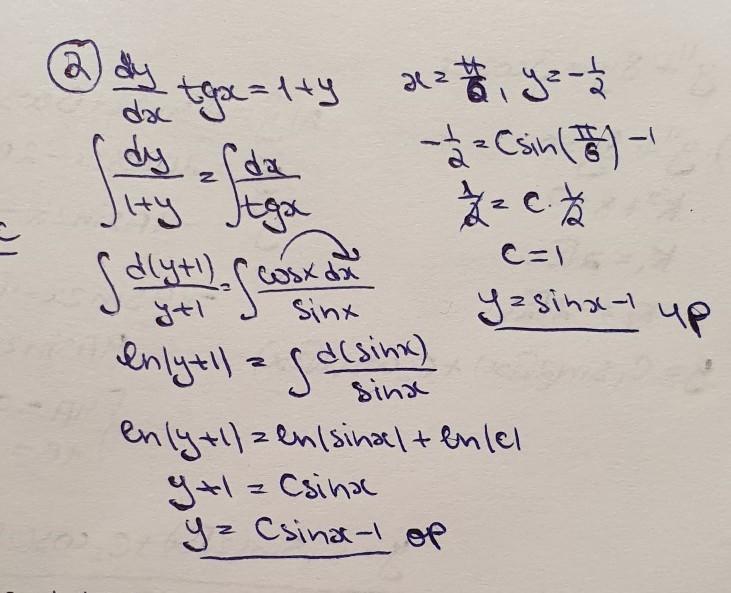 ② dy/dx tgx = 1+y
∫ dy/1+y = ∫ dx/tgx
∫ d(y+1)/y+1 = ∫ cosx dx/sinx
ln|y+1| = ∫ d(sinx)/sinx
ln|y+1| = ln|sinx| + ln|c|
y+1 = Csinx
y = Csinx-1 ор
x = π/6, y = -1/2
-1/2 = Csin(π/6) -1
1/2 = C · 1/2
C = 1
y = sinx-1 чр